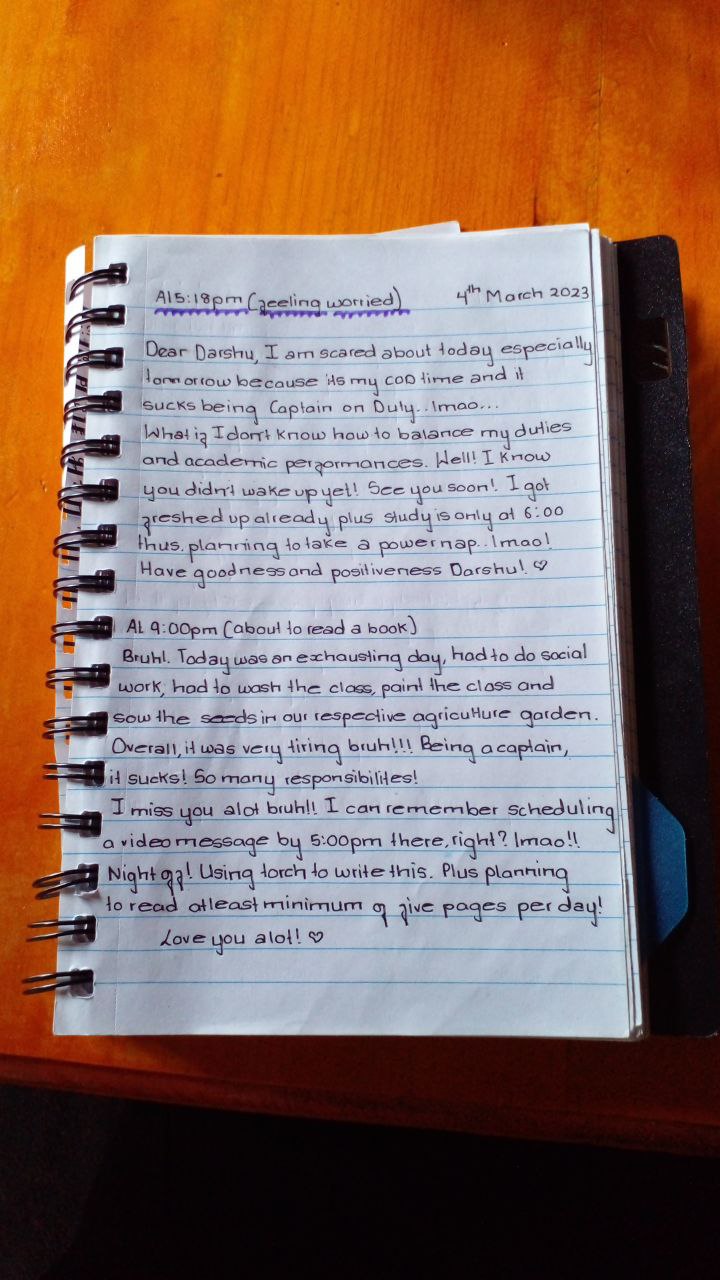 At 5:18pm (feeling worried)
4th March 2023
Dear Darshu, I am scared about today especially
tomorrow because its my COD time and it
sucks being Captain on Duty..lmao...
What if I don't know how to balance my duties
and academic performances. Well! I know
you didn't wake up yet! See you soon!. I got
freshed up already plus study is only at 6:00
thus. planning to take a power nap..lmao!
Have goodness and positiveness Darshu!. ♡
At 9:00pm (about to read a book)
Bruh!. Today was an exhausting day, had to do social
work, had to wash the class, paint the class and
sow the seeds in our respective agriculture garden.
Overall, it was very tiring bruh!!! Being a captain,
it sucks! So many responsibilites!
I miss you alot bruh!! I can remember scheduling
a video message by 5:00pm there, right? lmao!!
Night gf! Using torch to write this. Plus planning
to read atleast minimum of five pages per day!
Love you alot! ♡